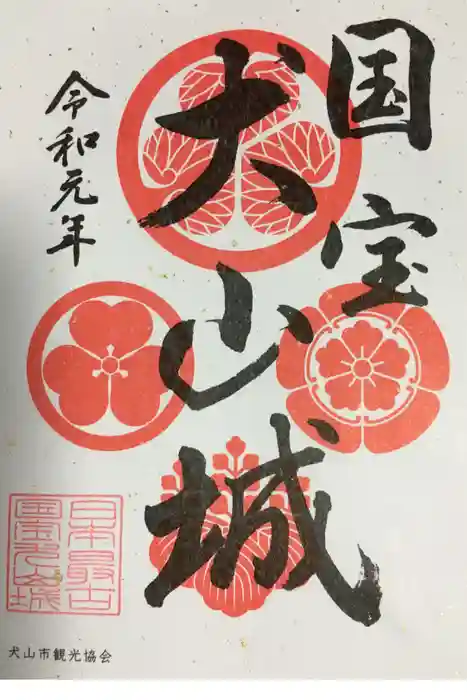 国宝
犬山城
令和元年
日本最古
国宝犬山城
犬山市観光協会